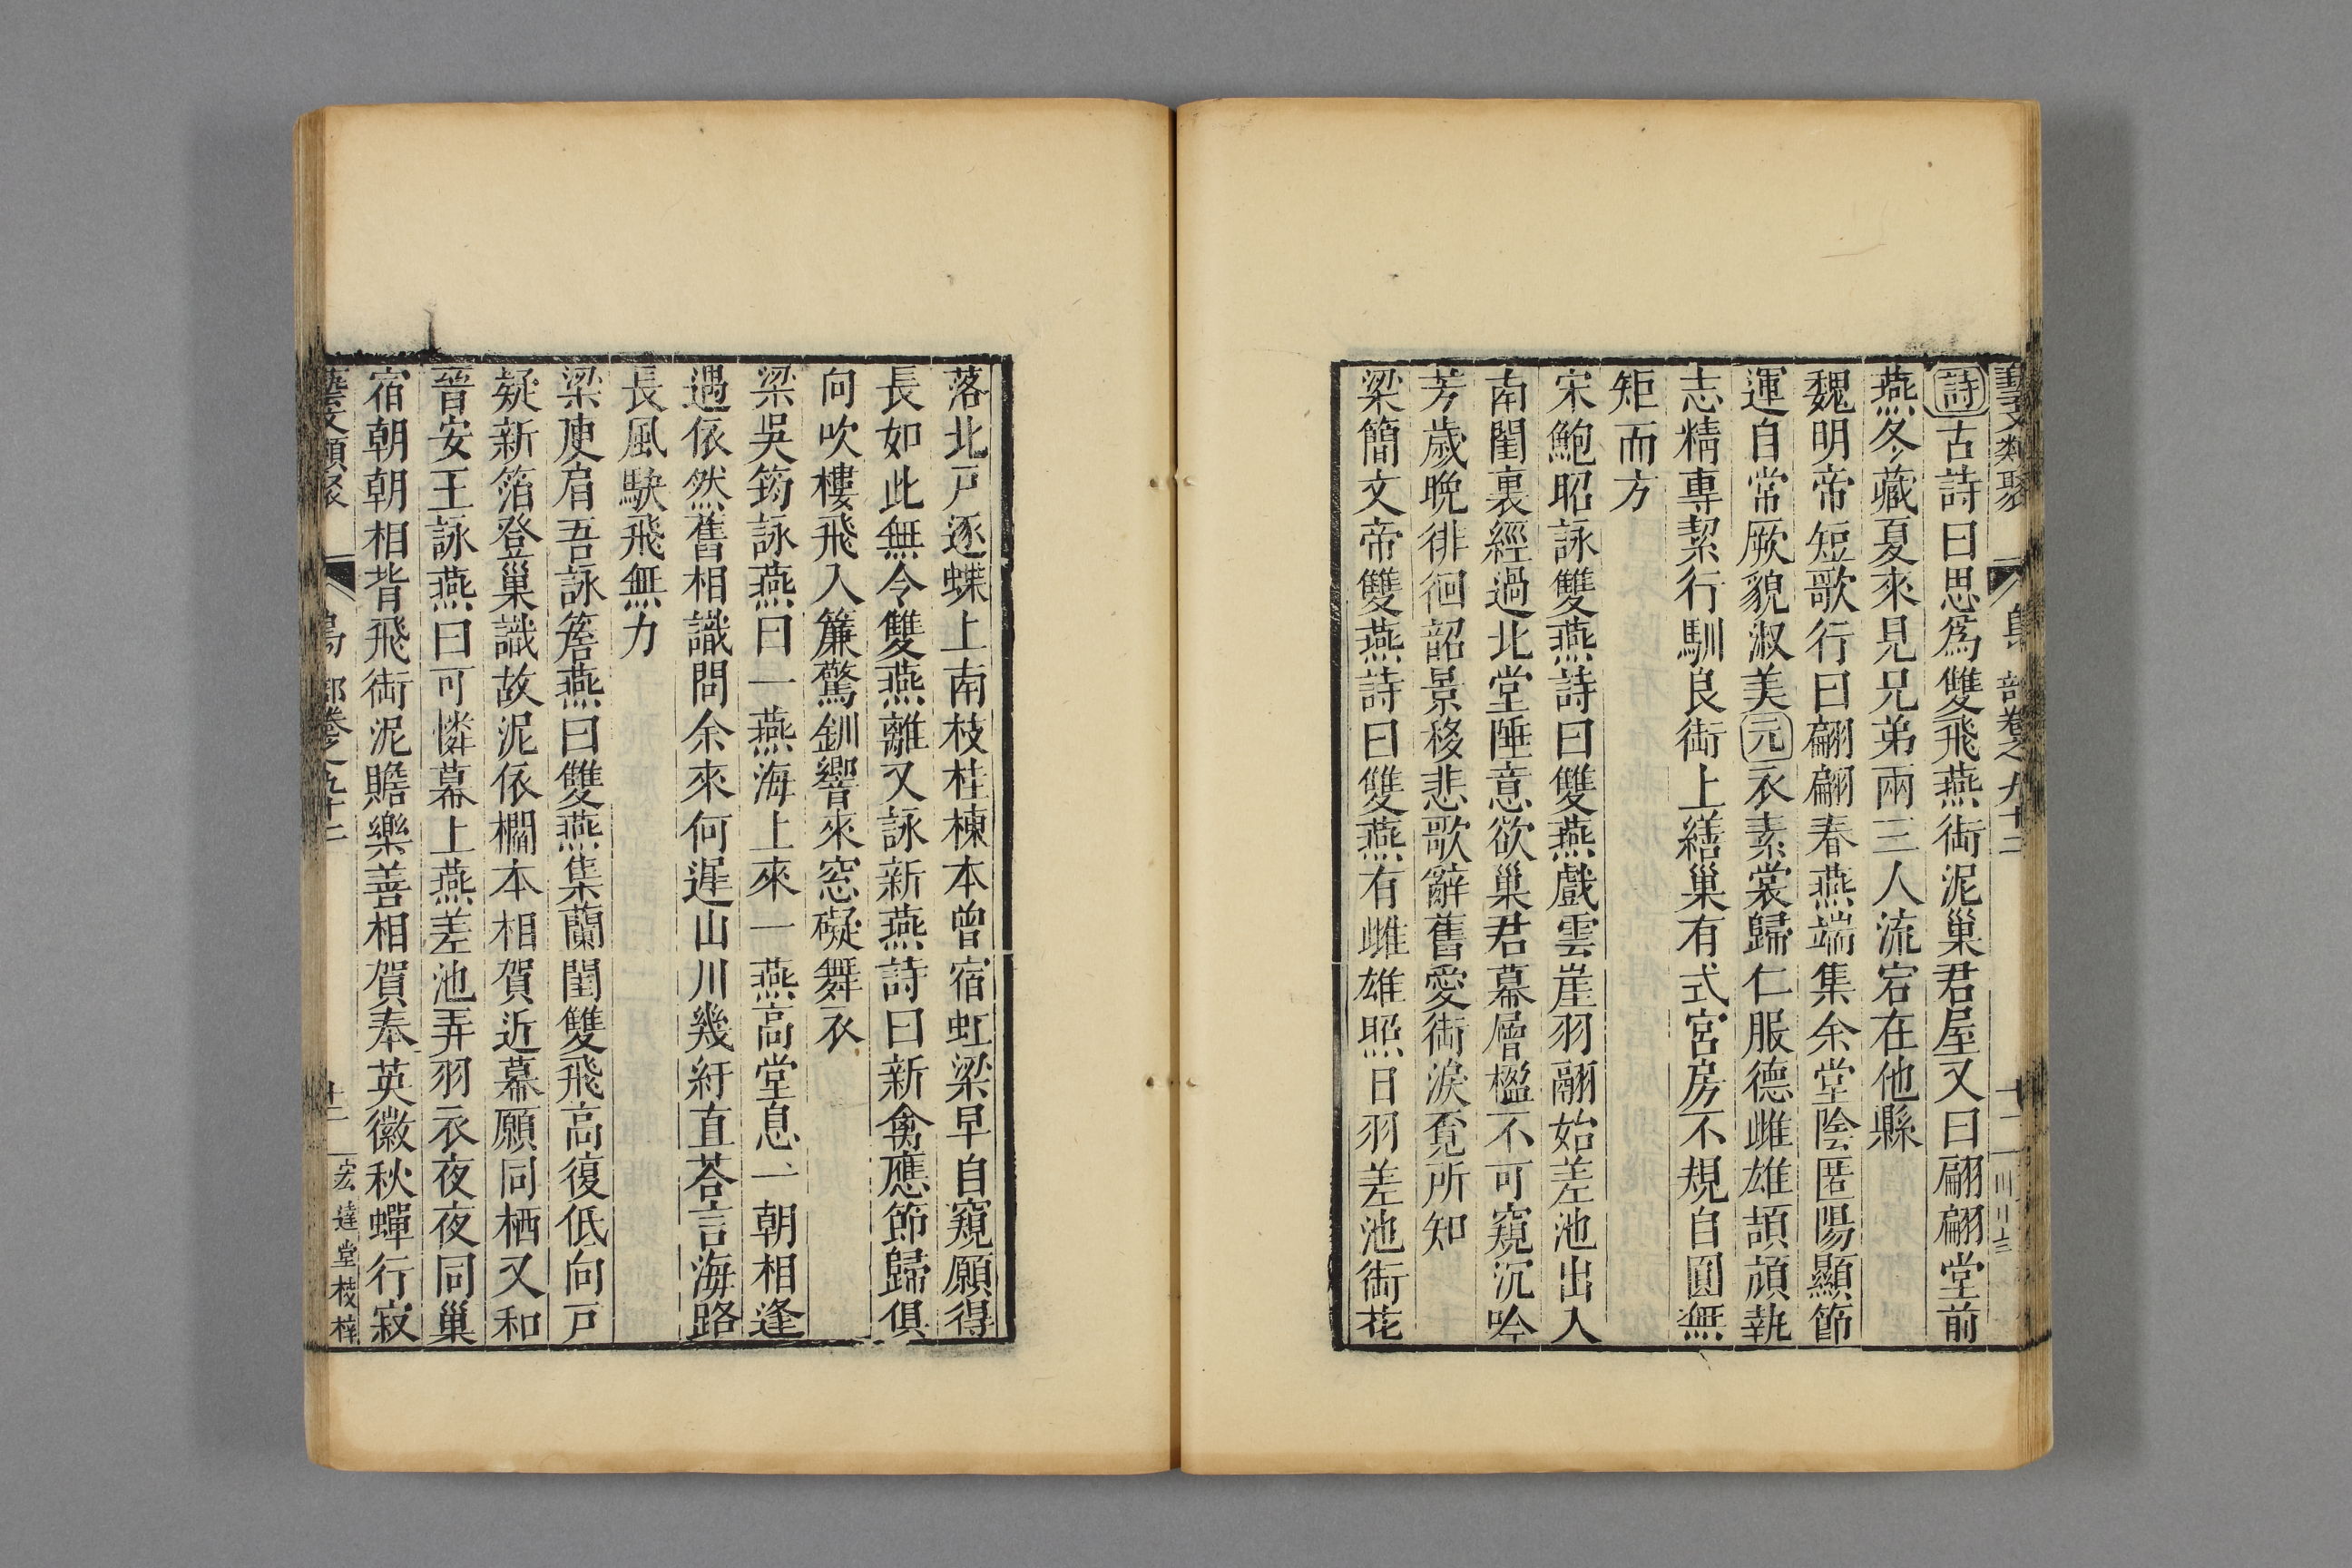 藝文類聚 鳥部卷之九十二 十二
詩古詩曰思爲雙飛燕銜泥巢君屋又曰翩翩堂前
燕冬藏夏來見兄弟兩三人流宕在他縣
魏明帝短歌行曰翩翩春燕端集余堂陰匿陽顯節
運自常厥貌淑美元衣素裳歸仁服德雌雄頡頏執
志精專絜行馴良銜上繕巢有式宮房不規自圓無
矩而方
宋鮑昭詠雙燕詩曰雙燕戲雲崖羽翮始差池出入
南閨裏經過北堂陲意欲巢君幕層楹不可窺沉吟
芳歲晚徘徊韶景移悲歌辭舊愛銜淚覔所知
梁簡文帝雙燕詩曰雙燕有雌雄照日羽差池銜花
落北戸逐蝶上南枝桂棟本曾宿虹梁早自窺願得
長如此無令雙燕離又詠新燕詩曰新禽應節歸俱
向吹樓飛入簾驚釧響來窓礙舞衣
梁吳筠詠燕曰一燕海上來一燕高堂息一朝相逢
遇依然舊相識問余來何遲山川幾紆直荅言海路
長風駛飛無力
梁庾肩吾詠簷燕曰雙燕集蘭閨雙飛高復低向戸
疑新箔登巢識故泥依櫩本相賀近幕願同栖又和
晉安王詠燕曰可憐幕上燕差池弄羽衣夜夜同巢
宿朝朝相背飛銜泥瞻樂善相賀奉英徽秋蟬行寂
藝文類聚 鳥部卷之九十二 十二 宏達堂校梓